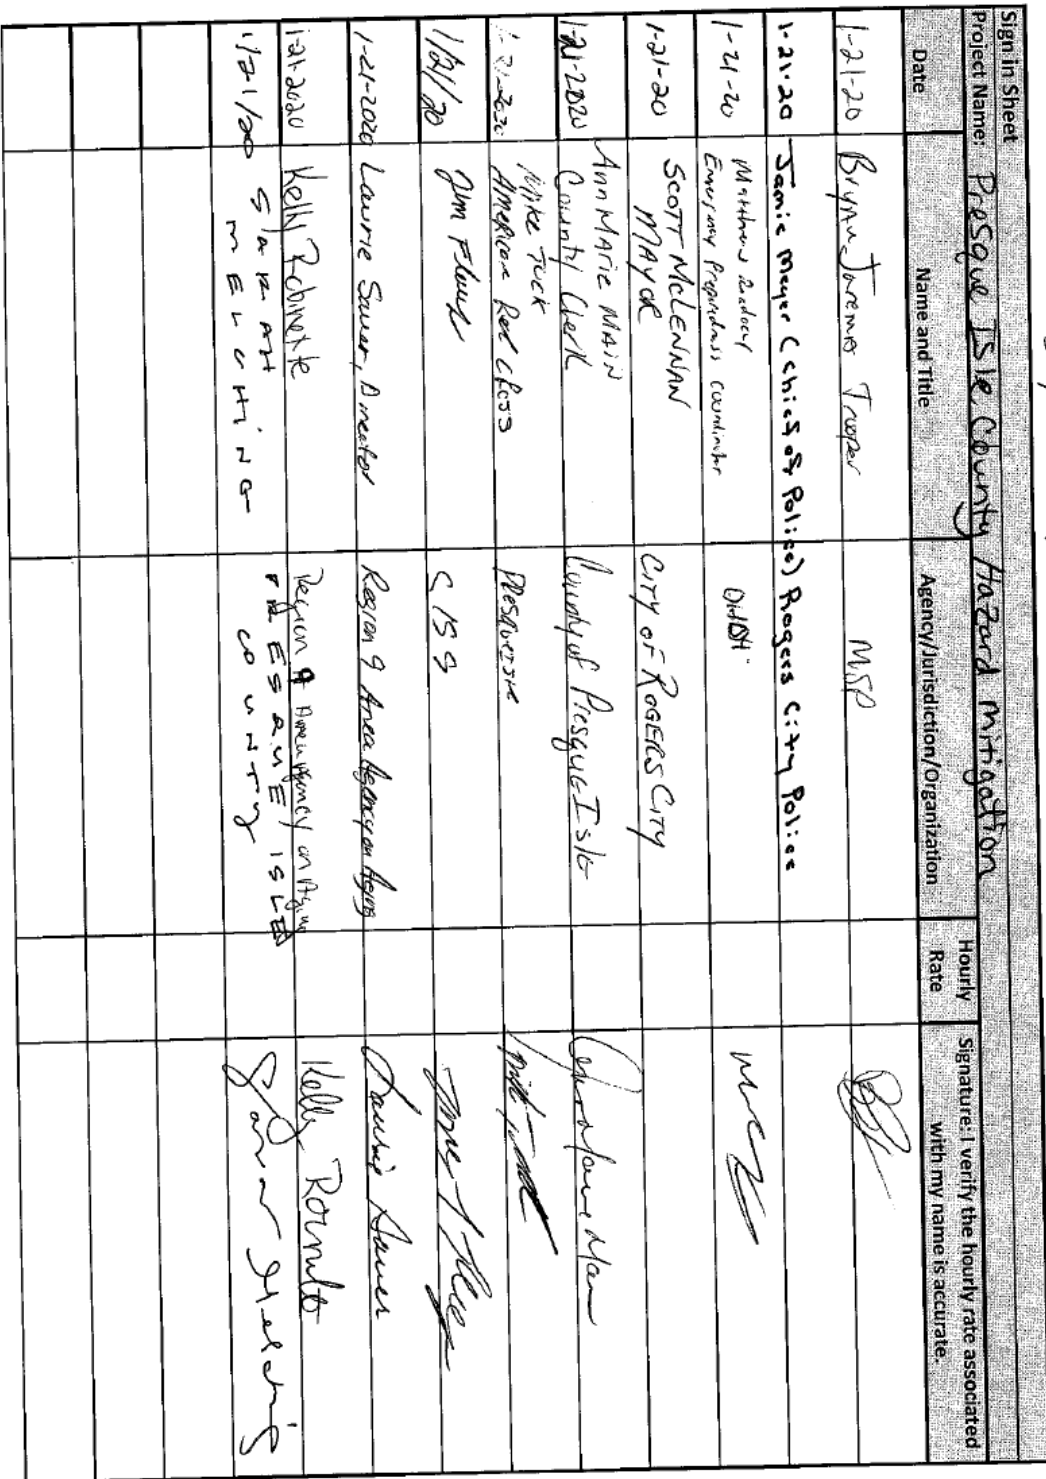 Sign in Sheet
Project Name: Presque Isle County Hazard mitigation
Date Name and Title Agency/Jurisdiction/Organization Hourly Rate Signature: I verify the hourly rate associated with my name is accurate.
1-21-20 Trooper MSP
1-21-20 Jamie Meyer (Chief of Police) Rogers City Police
1-21-20 Matthew
Emergency Preparedness coordinator
1-21-20 SCOTT McLENNAN CITY OF ROGERS CITY
MAYOR
1-21-2020 Ann MARIE MAIN County of Presque Isle
County Clerk
1-21-2020 Mike Tuck PresqueIsle
American Red Cross
1/21/20 Jim
1-21-2020 Laurie Sauer, Director Region 9 Area Agency on Aging Laurie Sauer
1-21-2020 Kelly Region 9 Area Agency on Aging Kelly
1/21/20 SARAH PRESQUE ISLE
MELCHING COUNTY Sarah Melching